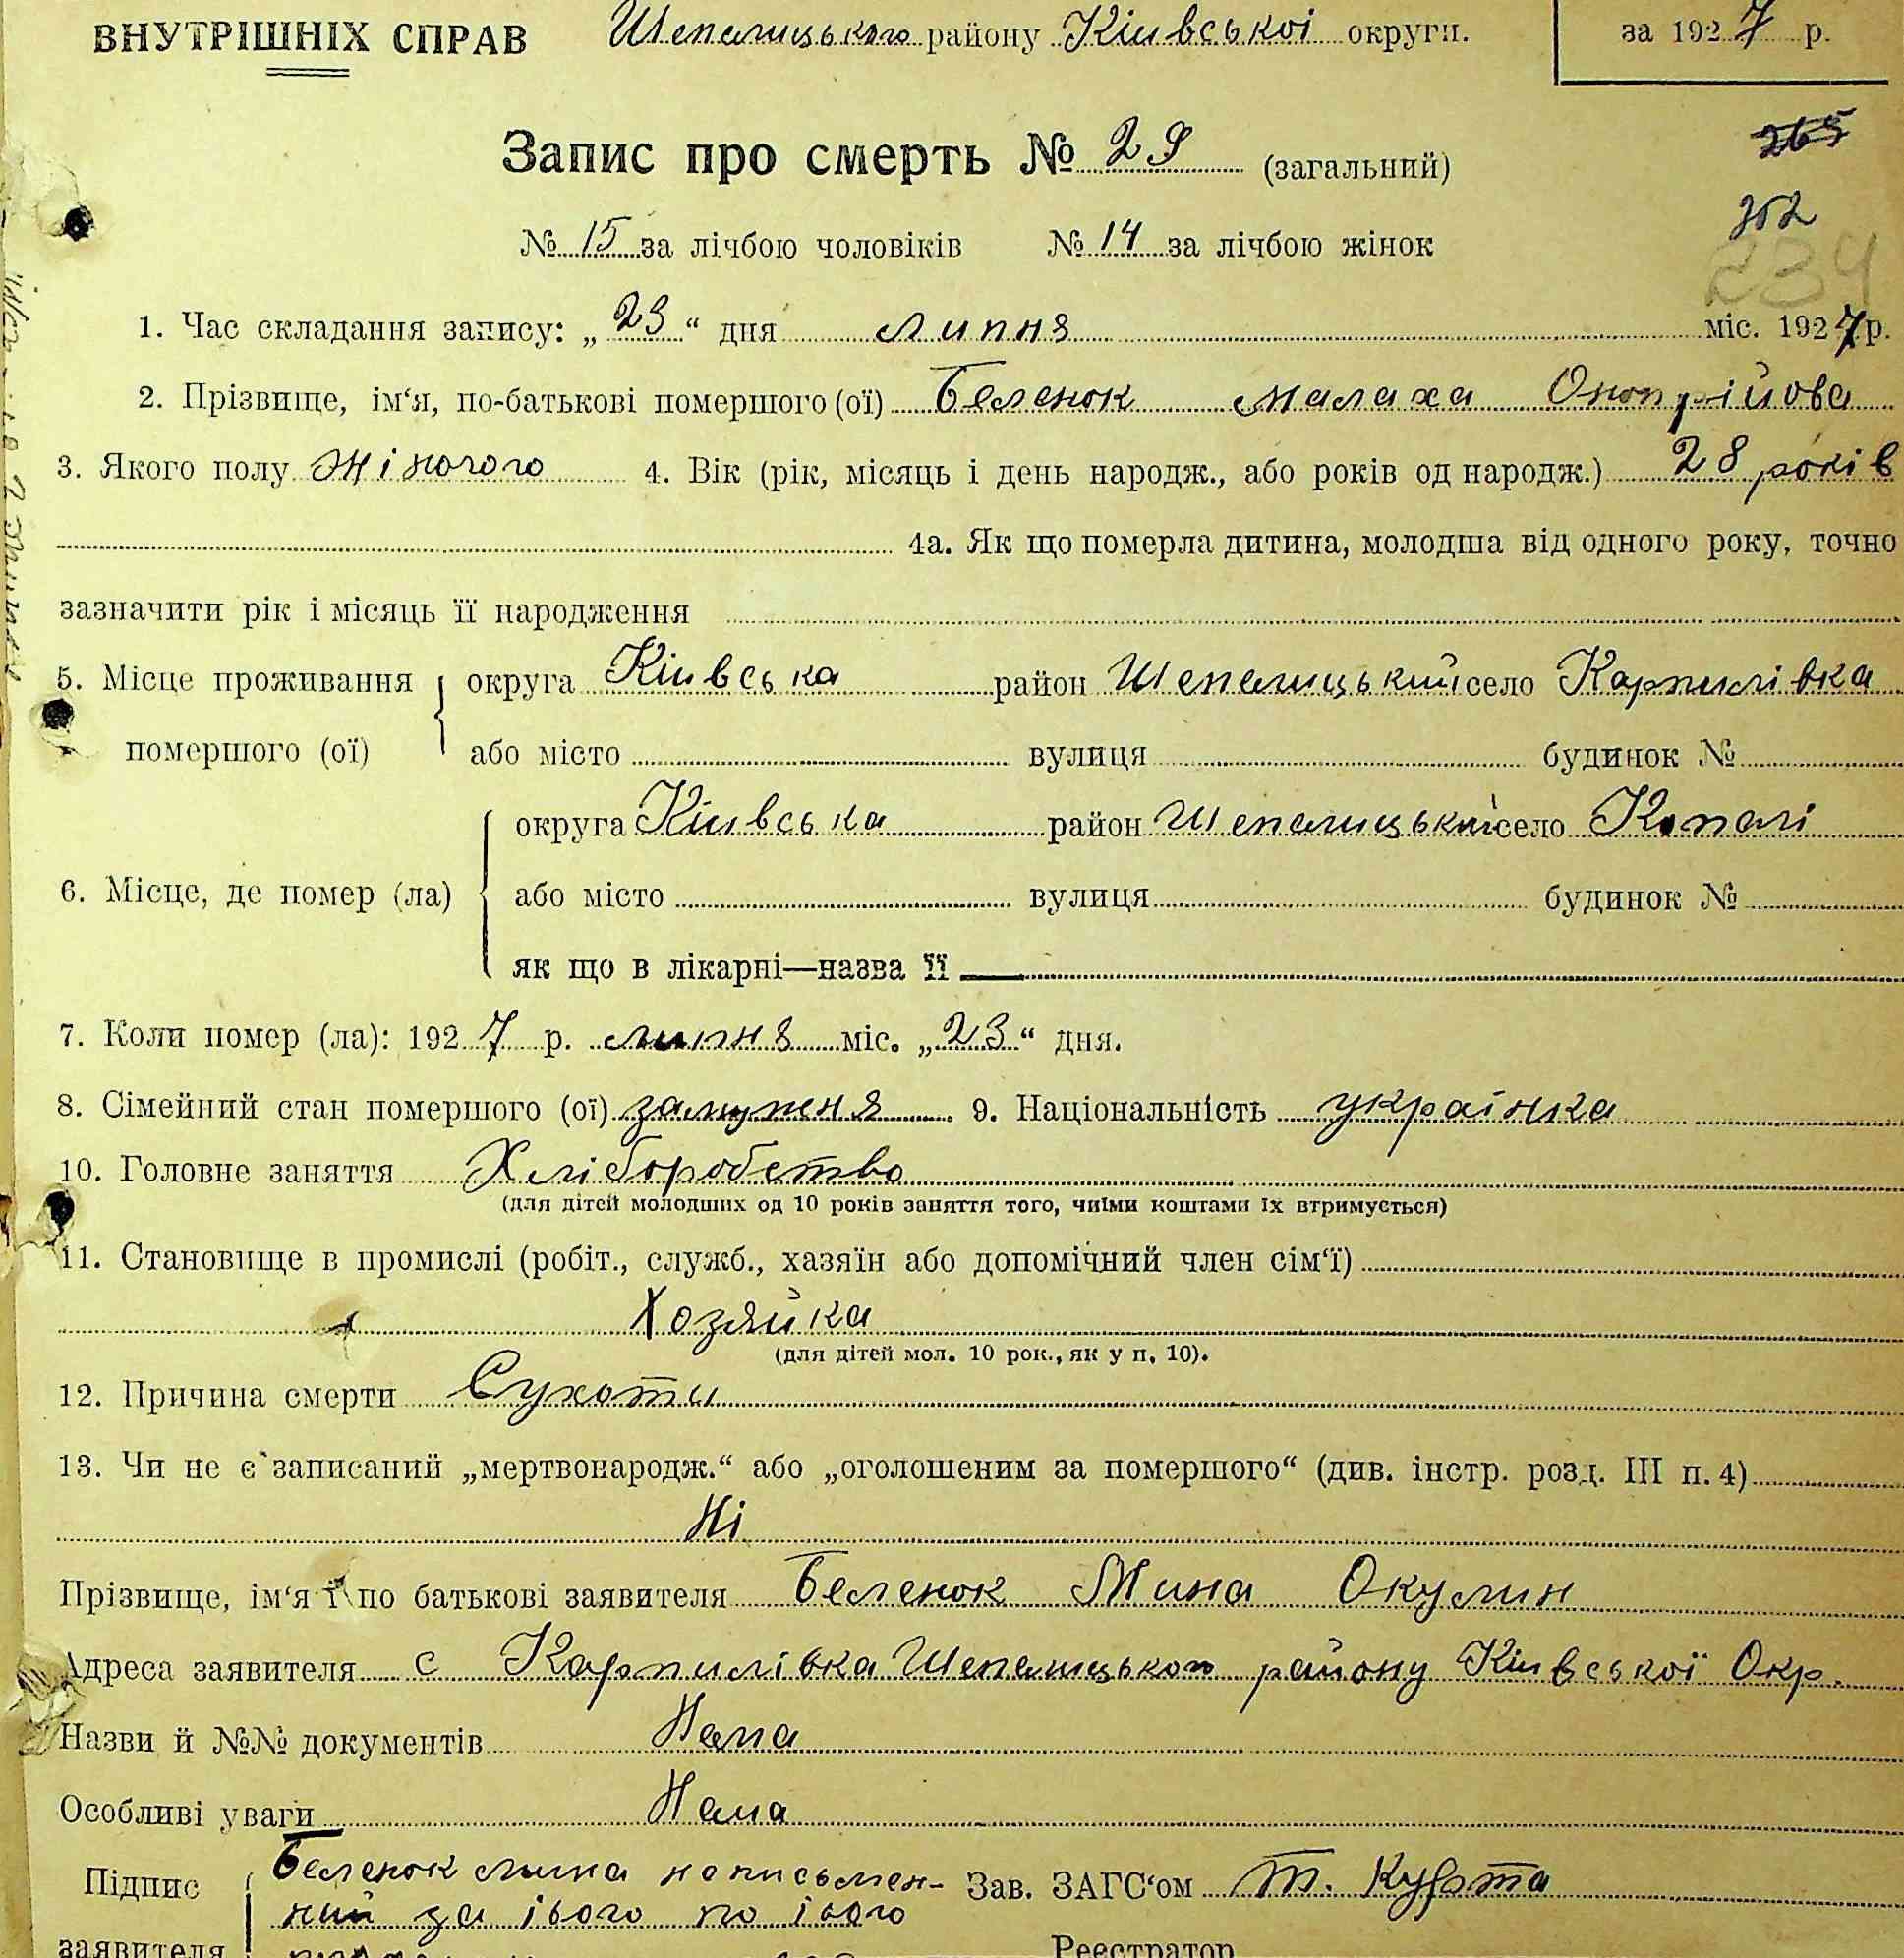 ВНУТРІШНІХ СПРАВ Шепелицького району Кіивської округи. за 1927 р.
Запис про смерть № 29 (загальний) 265
№ 15 за лічбою чоловіків № 14 за лічбою жінок 352
234
1. Час складання запису: „23“ дня липня міс. 1927 р.
2. Прізвище, ім‘я, по-батькові помершого (ої) Беленок малаха Оноприйова
3. Якого полу жіночого 4. Вік (рік, місяць і день народж., або років од народж.) 28 років
4а. Як що померла дитина, молодша від одного року, точно
зазначити рік і місяць її народження
5. Місце проживання округа Кіивська район Шепелицький село Карпилівка
помершого (ої) або місто вулиця будинок №
округа Кіивська район Шепелицький село Копачі
6. Місце, де помер (ла) або місто вулиця будинок №
як що в лікарні—назва її
7. Коли помер (ла): 1927 р. липня міс. „23“ дня.
8. Сімейний стан помершого (ої) замужня 9. Національність українка
10. Головне заняття Хліборобство
(для дітей молодших од 10 років заняття того, чиїми коштами їх втримується)
11. Становище в промислі (робіт., служб., хазяїн або допомічний член сім‘ї)
Хозяйка
(для дітей мол. 10 рок., як у п. 10).
12. Причина смерти Сухоти
13. Чи не є записаний „мертвонародж.“ або „оголошеним за помершого“ (див. інстр. розд. III п. 4)
Ні
Прізвище, ім‘я і по батькові заявителя Беленок Мина Окулин
Адреса заявителя с Карпилівка Шепелицького району Кіивської Окр.
Назви й №№ документів Нема
Особливі уваги Нема
Підпис Беленок мина неписьмен- Зав. ЗАГС‘ом Т. Курта
ний за його по його
заявителя Реестратор